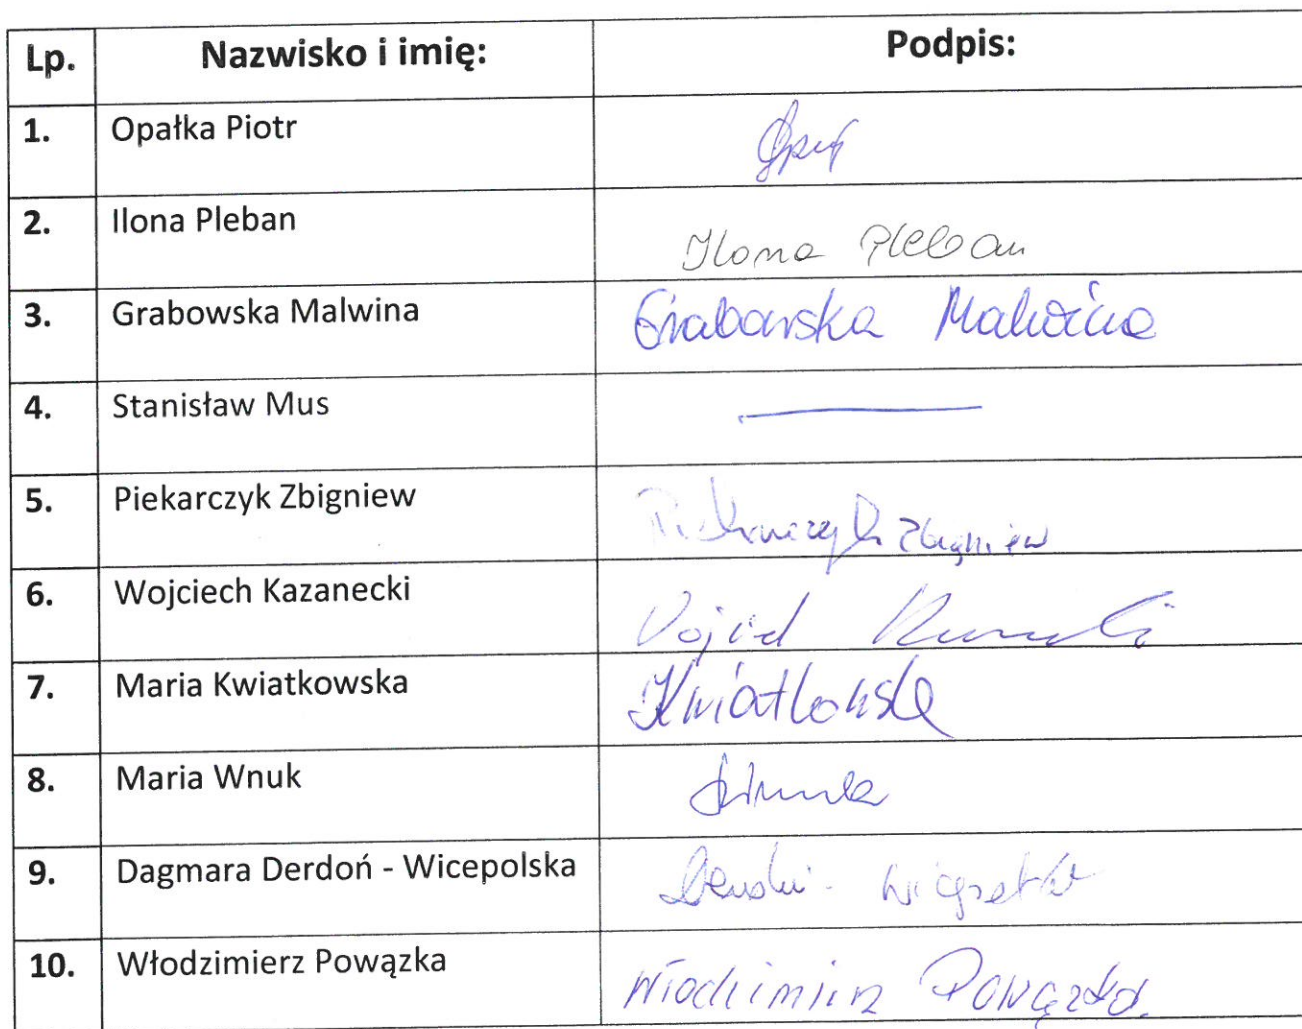 Lp. Nazwisko i imię: Podpis:
1. Opałka Piotr
2. Ilona Pleban Ilona Pleban
3. Grabowska Malwina Grabowska Malwina
4. Stanisław Mus
5. Piekarczyk Zbigniew Piekarczyk Zbigniew
6. Wojciech Kazanecki
7. Maria Kwiatkowska Kwiatkowska
8. Maria Wnuk
9. Dagmara Derdoń - Wicepolska
10. Włodzimierz Powązka Włodzimierz Powązka